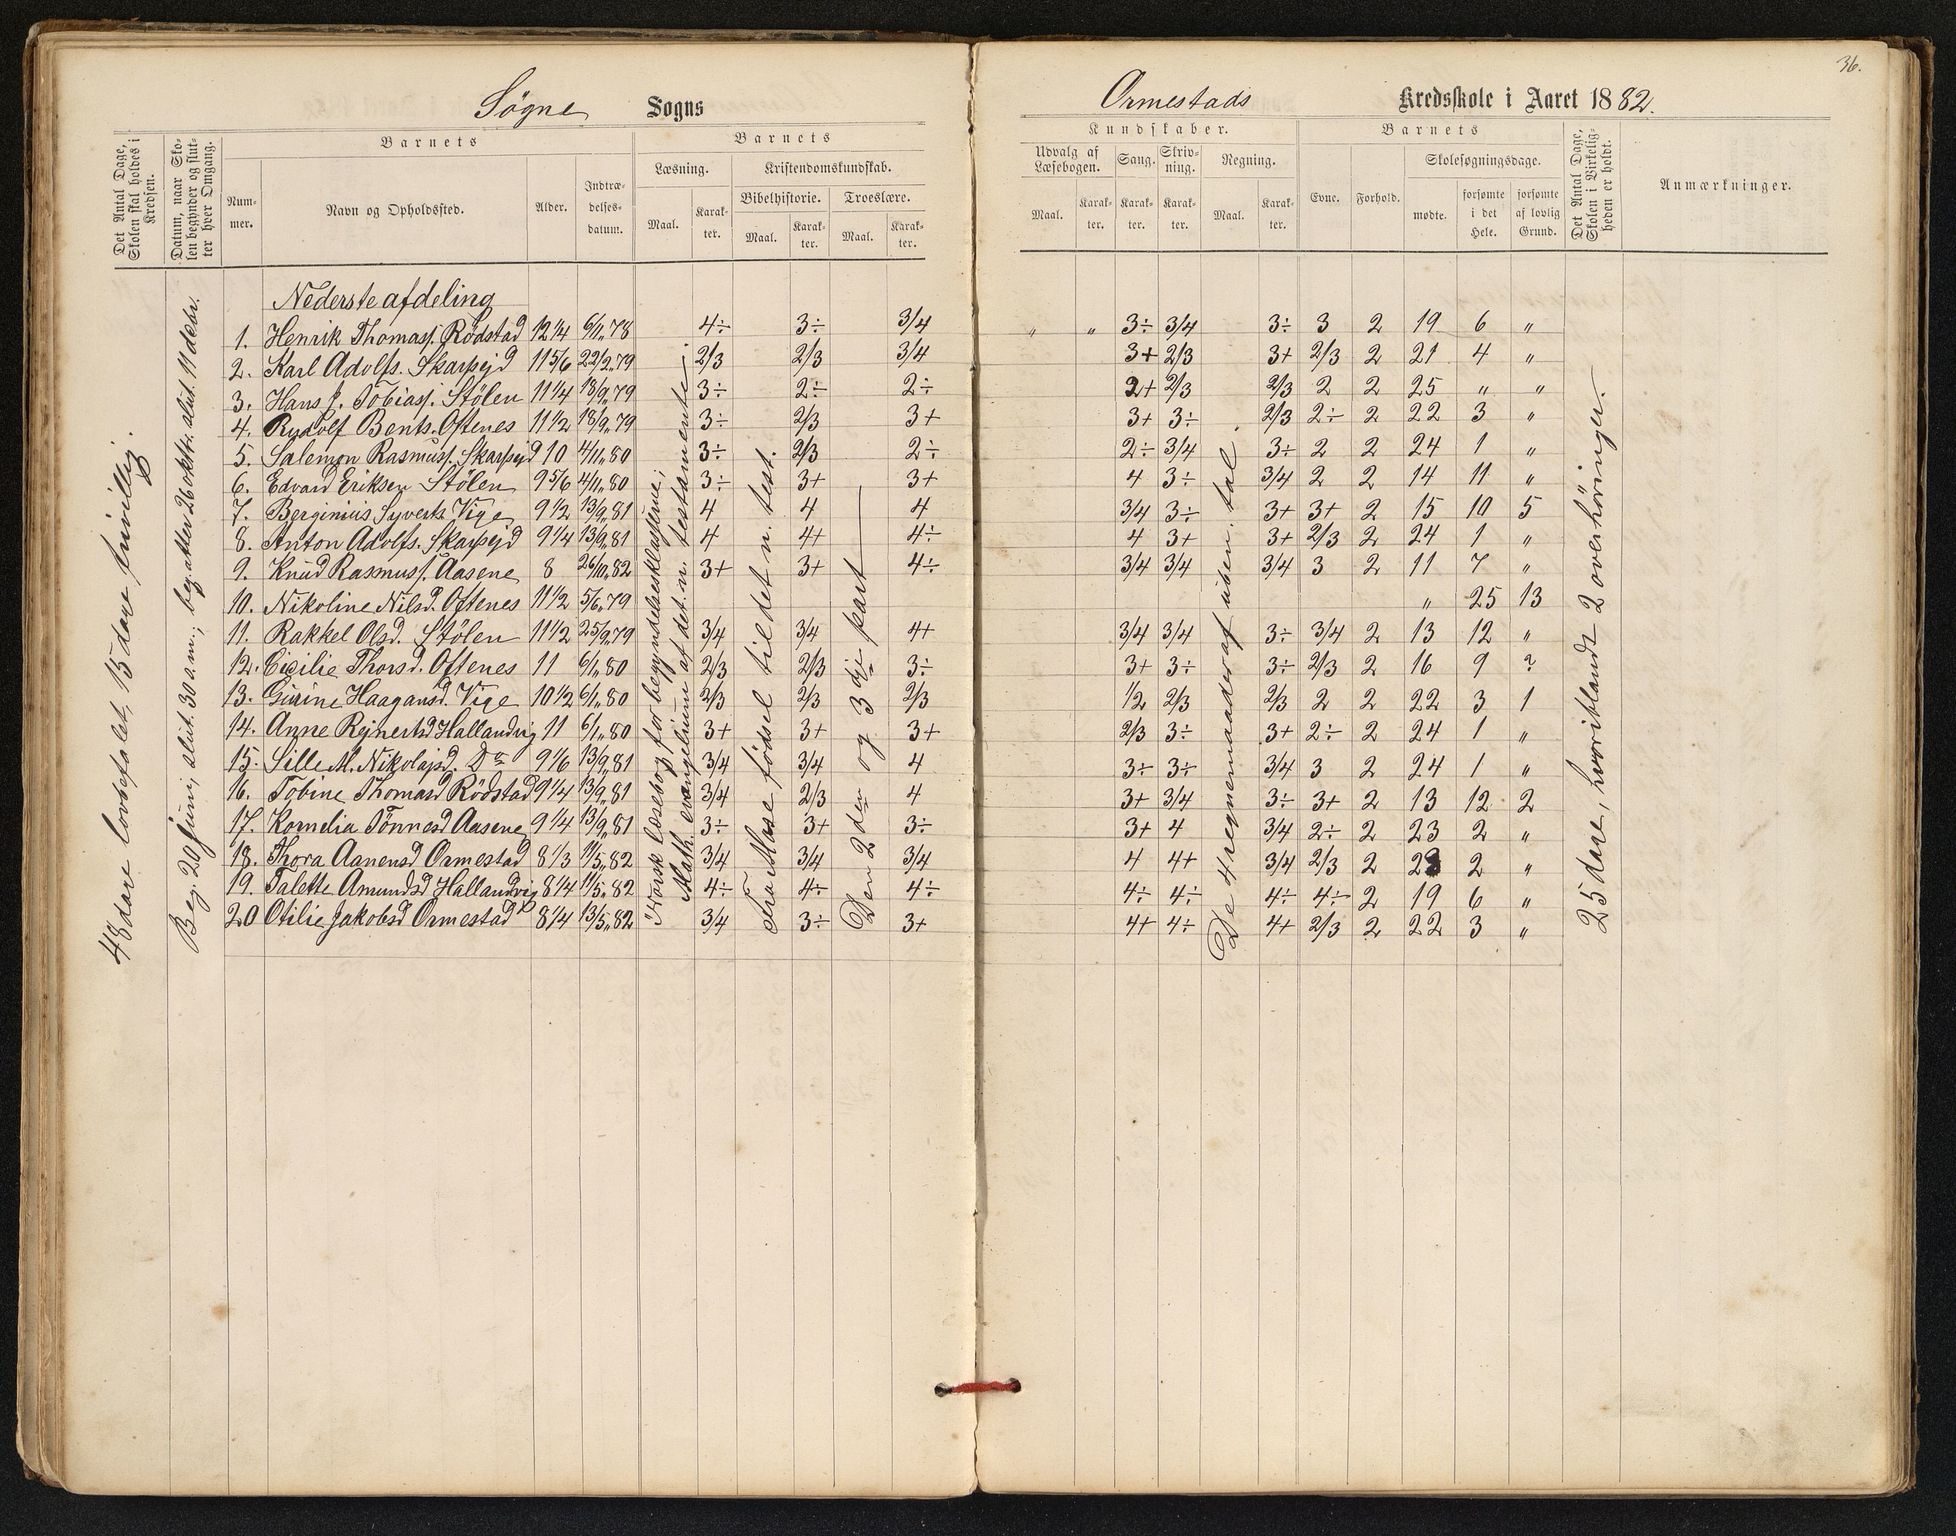 36.
Søgne Sogns
Ormestads Kredsskole i Aaret 1882.
Det Antal Dage, Skolen skal holdes i Kredsen.
Datum, naar Skolen begynder og slutter hver Omgang.
Barnets
Nummer.
Navn og Opholdssted.
Alder.
Indtrædelsesdatum.
Barnets
Læsning.
Maal. Karakter.
Kristendomskundskab.
Bibelhistorie. Troeslære.
Maal. Karakter. Maal. Karakter.
Kundskaber.
Udvalg af Læsebogen. Sang. Skrivning. Regning.
Maal. Karakter. Karakter. Karakter. Maal. Karakter.
Barnets
Evne. Forhold. Skolesøgningsdage.
mødte. forsømte i det Hele. forsømte af lovlig Grund.
Det Antal Dage, Skolen i Virkeligheden er holdt.
Anmærkninger.
48 dage lovbefalet, 15 dage frivillig.
Beg. 20 juni, slut. 30 a.m.; beg. atter 26 oktbr. slut. 11 debr.
Norsk læsebog for begyndelsesklasserne;
Math. evangelium af det n. testamente.
Fra Mose fødsel til det n. test.
Den 2den og 3dje part
De 4 regnemaader af uben. tal.
25 dage, hvoriblandt 2 overhøringer.
Nederste afdeling
1. Henrik Thomass. Rødstad 12 1/4 6/11 78 4÷ 3÷ 3/4 „ „ 3÷ 3/4 3÷ 3 2 19 6 „
2. Karl Adolfs. Skarpejd 11 5/6 22/2 79 2/3 2/3 3/4 3+ 2/3 3+ 2/3 2 21 4 „
3. Hans J. Tobiass. Stølen 11 1/4 18/9 79 3÷ 2÷ 2÷ 2+ 2/3 2/3 2 2 25 „ „
4. Rudolf Bents. Oftenes 11 1/2 18/9 79 3÷ 2/3 3+ 3+ 3÷ 2/3 2÷ 2 22 3 „
5. Salemon Rasmuss. Skarpejd 10 4/11 80 3÷ 2/3 2÷ 2÷ 3/4 3÷ 2 2 24 1 „
6. Edvard Eriksen Stølen 9 5/6 4/11 80 3÷ 3+ 3+ 4 3÷ 3/4 2 2 14 11 „
7. Berginius Syverts. Vige 9 1/2 13/9 81 4 4 4 3/4 3÷ 3+ 3+ 2 15 10 5
8. Anton Adolfs. Skarpejd 9 1/4 13/9 81 4 4+ 4÷ 4 3+ 3+ 2/3 2 24 1 „
9. Knud Rasmuss. Aasene 8 26/10 82 3+ 3+ 4÷ 3/4 3/4 3/4 3 2 11 7 „
10. Nikoline Nilsd. Oftenes 11 1/2 5/6 79 „ 25 13
11. Rakkel Olsd. Stølen 11 1/2 25/9 79 3/4 3/4 4+ 3/4 3/4 3÷ 3/4 2 13 12 „
12. Cicilie Thorsd. Oftenes 11 6/1 80 2/3 2/3 3÷ 3+ 3÷ 3÷ 2/3 2 16 9 2
13. Gurine Haagansd. Vige 10 1/2 6/1 80 2/3 2/3 2/3 1/2 2/3 2/3 2 2 22 3 1
14. Anne Rejnertsd Hallandvig 11 6/1 80 3+ 3+ 3+ 2/3 3÷ 3+ 2÷ 2 24 1 „
15. Sille M. Nikolajsd. Do 9 1/6 13/9 81 3/4 3/4 4 3÷ 3÷ 3/4 3 2 24 1 „
16. Tobine Thomasd Rødstad 9 1/4 13/9 81 3/4 2/3 4 3+ 3/4 3÷ 3+ 2 13 12 2
17. Kornelia Tønnesd Aasene 9 1/4 13/9 81 3÷ 3+ 3÷ 3+ 4 3/4 2÷ 2 23 2 „
18. Thora Aanensd Ormestad 8 1/3 11/5 82 3/4 3/4 3/4 4 4+ 3/4 2/3 2 23 2 „
19. Talette Amundsd Hallandvig 8 1/4 11/5 82 4÷ 4÷ 4÷ 4÷ 4÷ 4÷ 4÷ 2 19 6 „
20 Otilie Jakobsd Ormestad 8 1/4 13/5 82 3/4 3÷ 3+ 4+ 4÷ 4+ 2/3 2 22 3 „